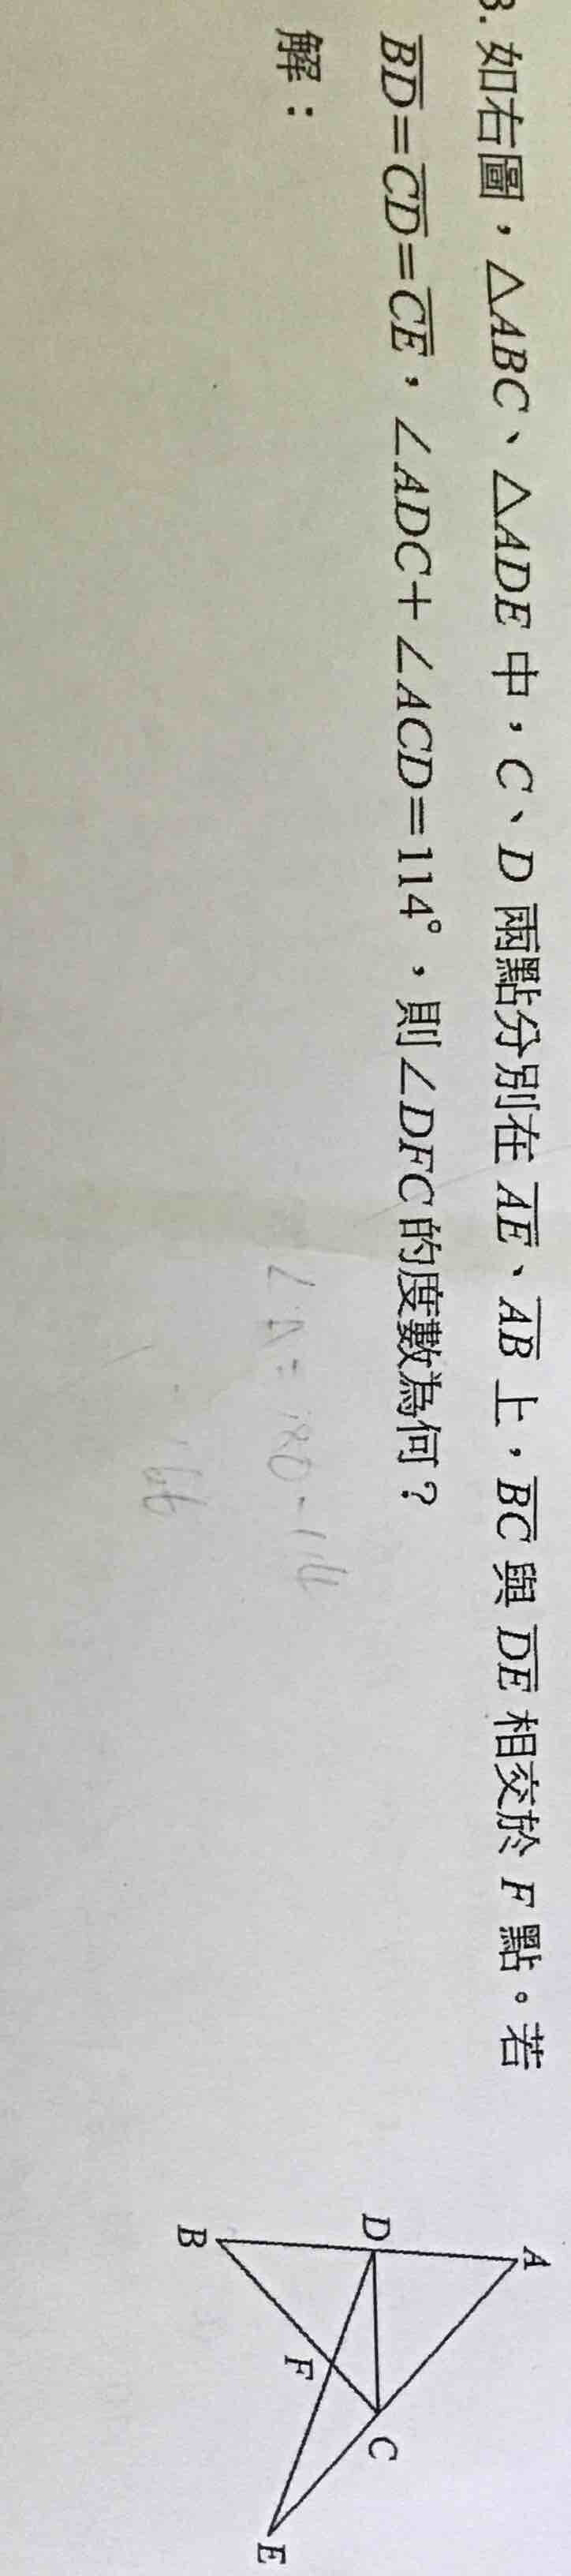 3. 如右圖，△ABC、△ADE 中，C、D 兩點分別在 AE、AB 上，BC 與 DE 相交於 F 點。若
BD=CD=CE，∠ADC+∠ACD=114°，則∠DFC 的度數為何？
解：
∠A=180-114
A
D
B
C
F
E